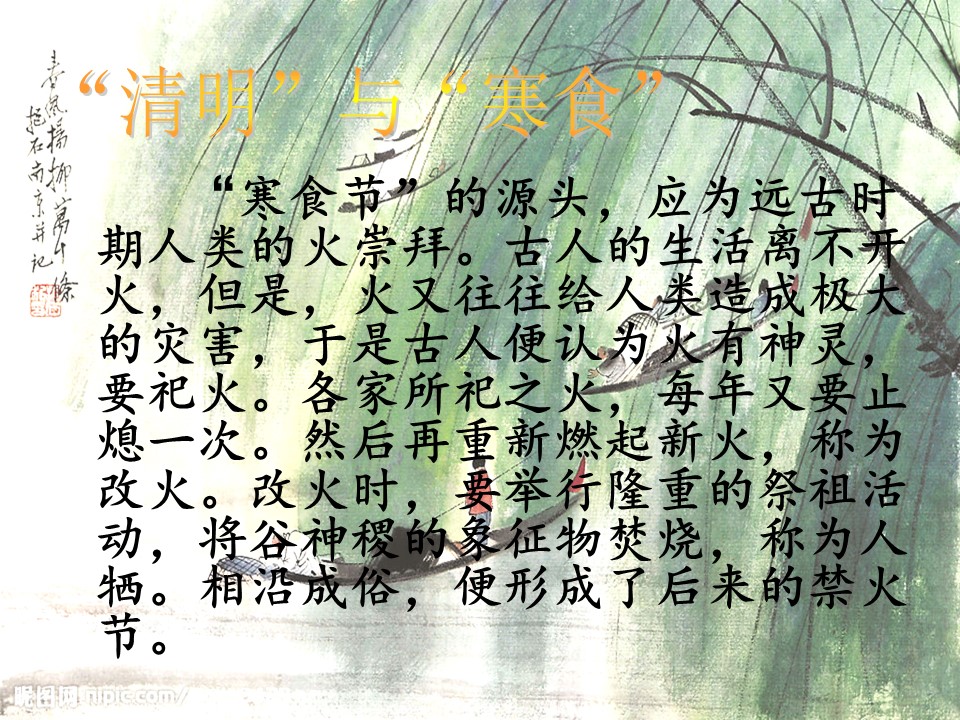 “清明”与“寒食”
“寒食节”的源头，应为远古时
期人类的火崇拜。古人的生活离不开
火，但是，火又往往给人类造成极大
的灾害，于是古人便认为火有神灵，
要祀火。各家所祀之火，每年又要止
熄一次。然后再重新燃起新火，称为
改火。改火时，要举行隆重的祭祖活
动，将谷神稷的象征物焚烧，称为人
牺。相沿成俗，便形成了后来的禁火
节。
春风杨柳万千條
抱石南京并记
昵图网 nipic.com/